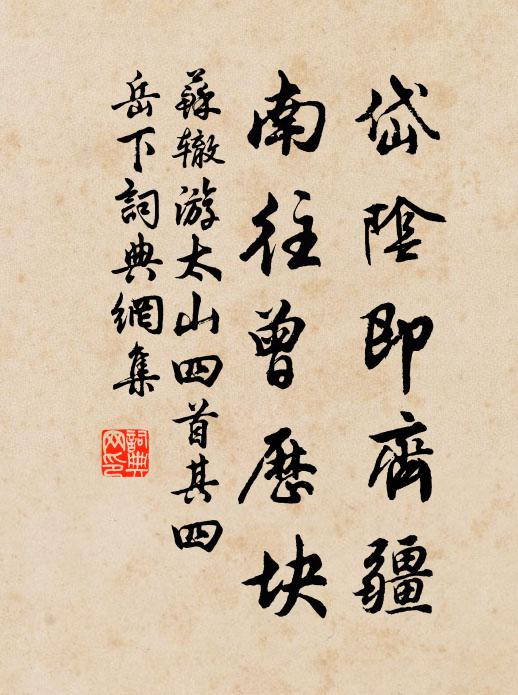 岱陰即齊疆
南往曾歷块
蘇辙游太山四首其四
岳下詞典網集
詞典
网印